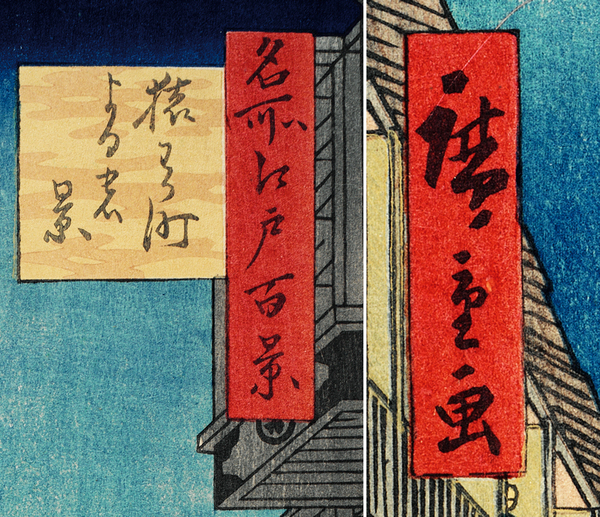 名所江戸百景
猿わか町
よるの
景
廣重画